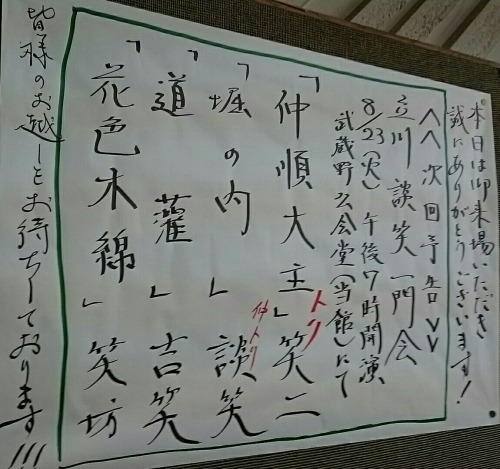 本日は御来場いただき
誠にありがとうございます!
<<次回予告>>
立川談笑一門会
8/23(火)午後7時開演
武蔵野公会堂(当館)にて
「仲順大主」笑二
トリ
「堀の内」談笑
仲トリ
「道灌」吉笑
「花色木綿」笑坊
皆様のお越しをお待ちしております!!!